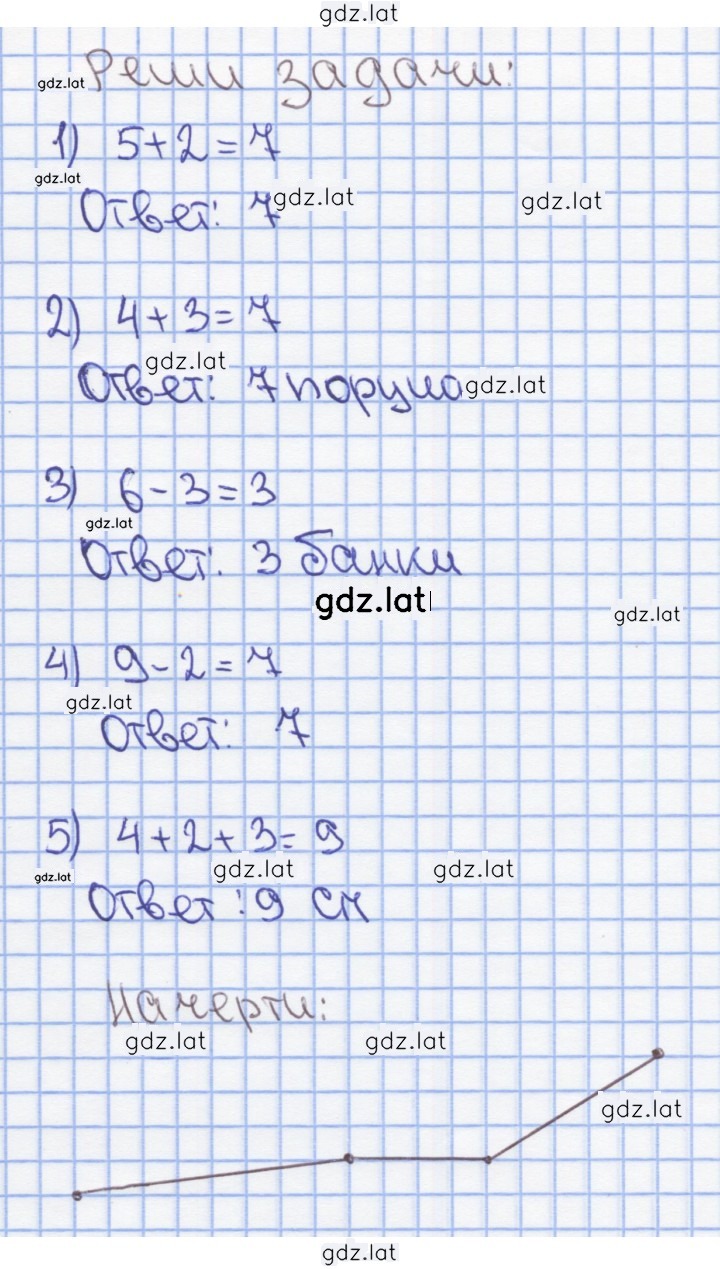 gdz.lat
gdz.lat Реши задачи:
1) 5+2=7
gdz.lat
Ответ: 7 gdz.lat gdz.lat
2) 4+3=7
gdz.lat
Ответ: 7 gdz.lat
3) 6-3=3
gdz.lat
Ответ: 3 банки
gdz.lat gdz.lat
4) 9-2=7
gdz.lat
Ответ: 7
5) 4+2+3=9
gdz.lat gdz.lat gdz.lat
Ответ: 9 см
Начерти:
gdz.lat gdz.lat
gdz.lat
gdz.lat